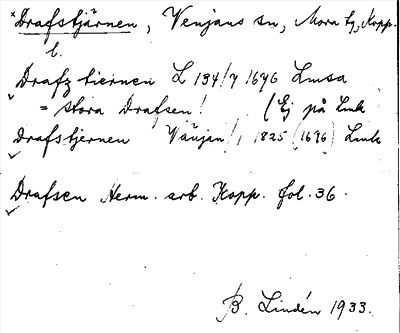 *Drafstjärnen, Venjans sn, Mora tg, Kopp.
l.
Drafz tiernen L 134/7 1696 Lmsa
= stora Drafsen! (Ej på Lmk
Drafstjernen Vänjan /1 1825 (1696) Lmk
Drafsen Herm. arb. Kopp. fol. 36.
B. Lindén 1933.